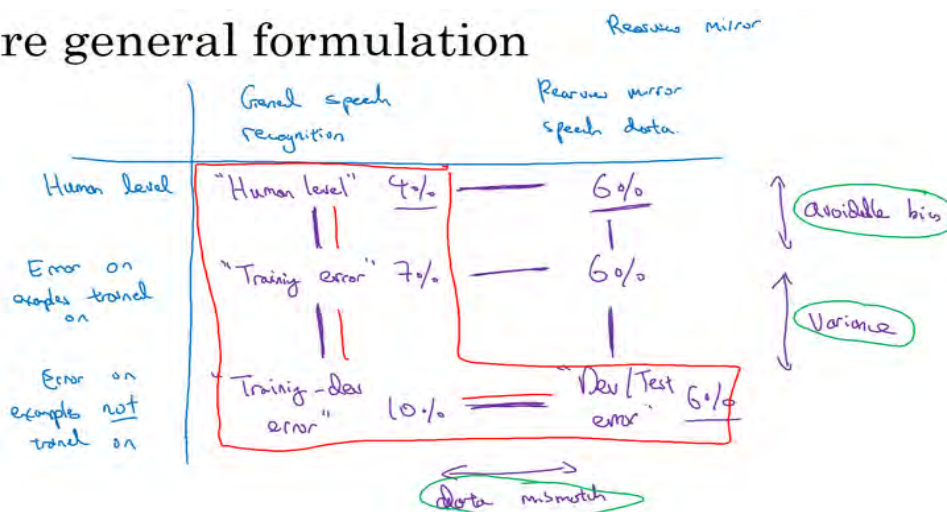 re general formulation
Rearview mirror
General speech
recognition
Rearview mirror
speech data.
Human level
"Human level" 4%
6%
avoidable bias
Error on
examples trained
on
"Training error" 7%
6%
Variance
Error on
examples not
trained on
"Training-dev
error" 10%
"Dev/Test
error" 6%
data mismatch